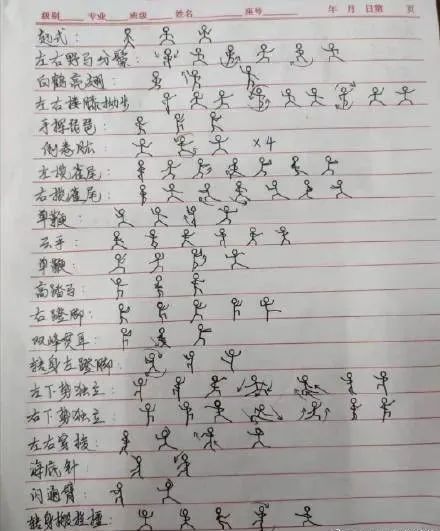 级别 专业 班级 姓名 座号 年 月 日第 页
起式：
左右野马分鬃：
白鹤亮翅：
左右搂膝拗步
手挥琵琶：
倒卷肱： ×4
左揽雀尾：
右揽雀尾：
单鞭：
云手：
单鞭：
高踏马：
右蹬脚：
双峰贯耳：
转身左蹬脚：
左下势独立：
右下势独立：
左右穿梭：
海底针：
闪通臂：
转身搬拦捶：